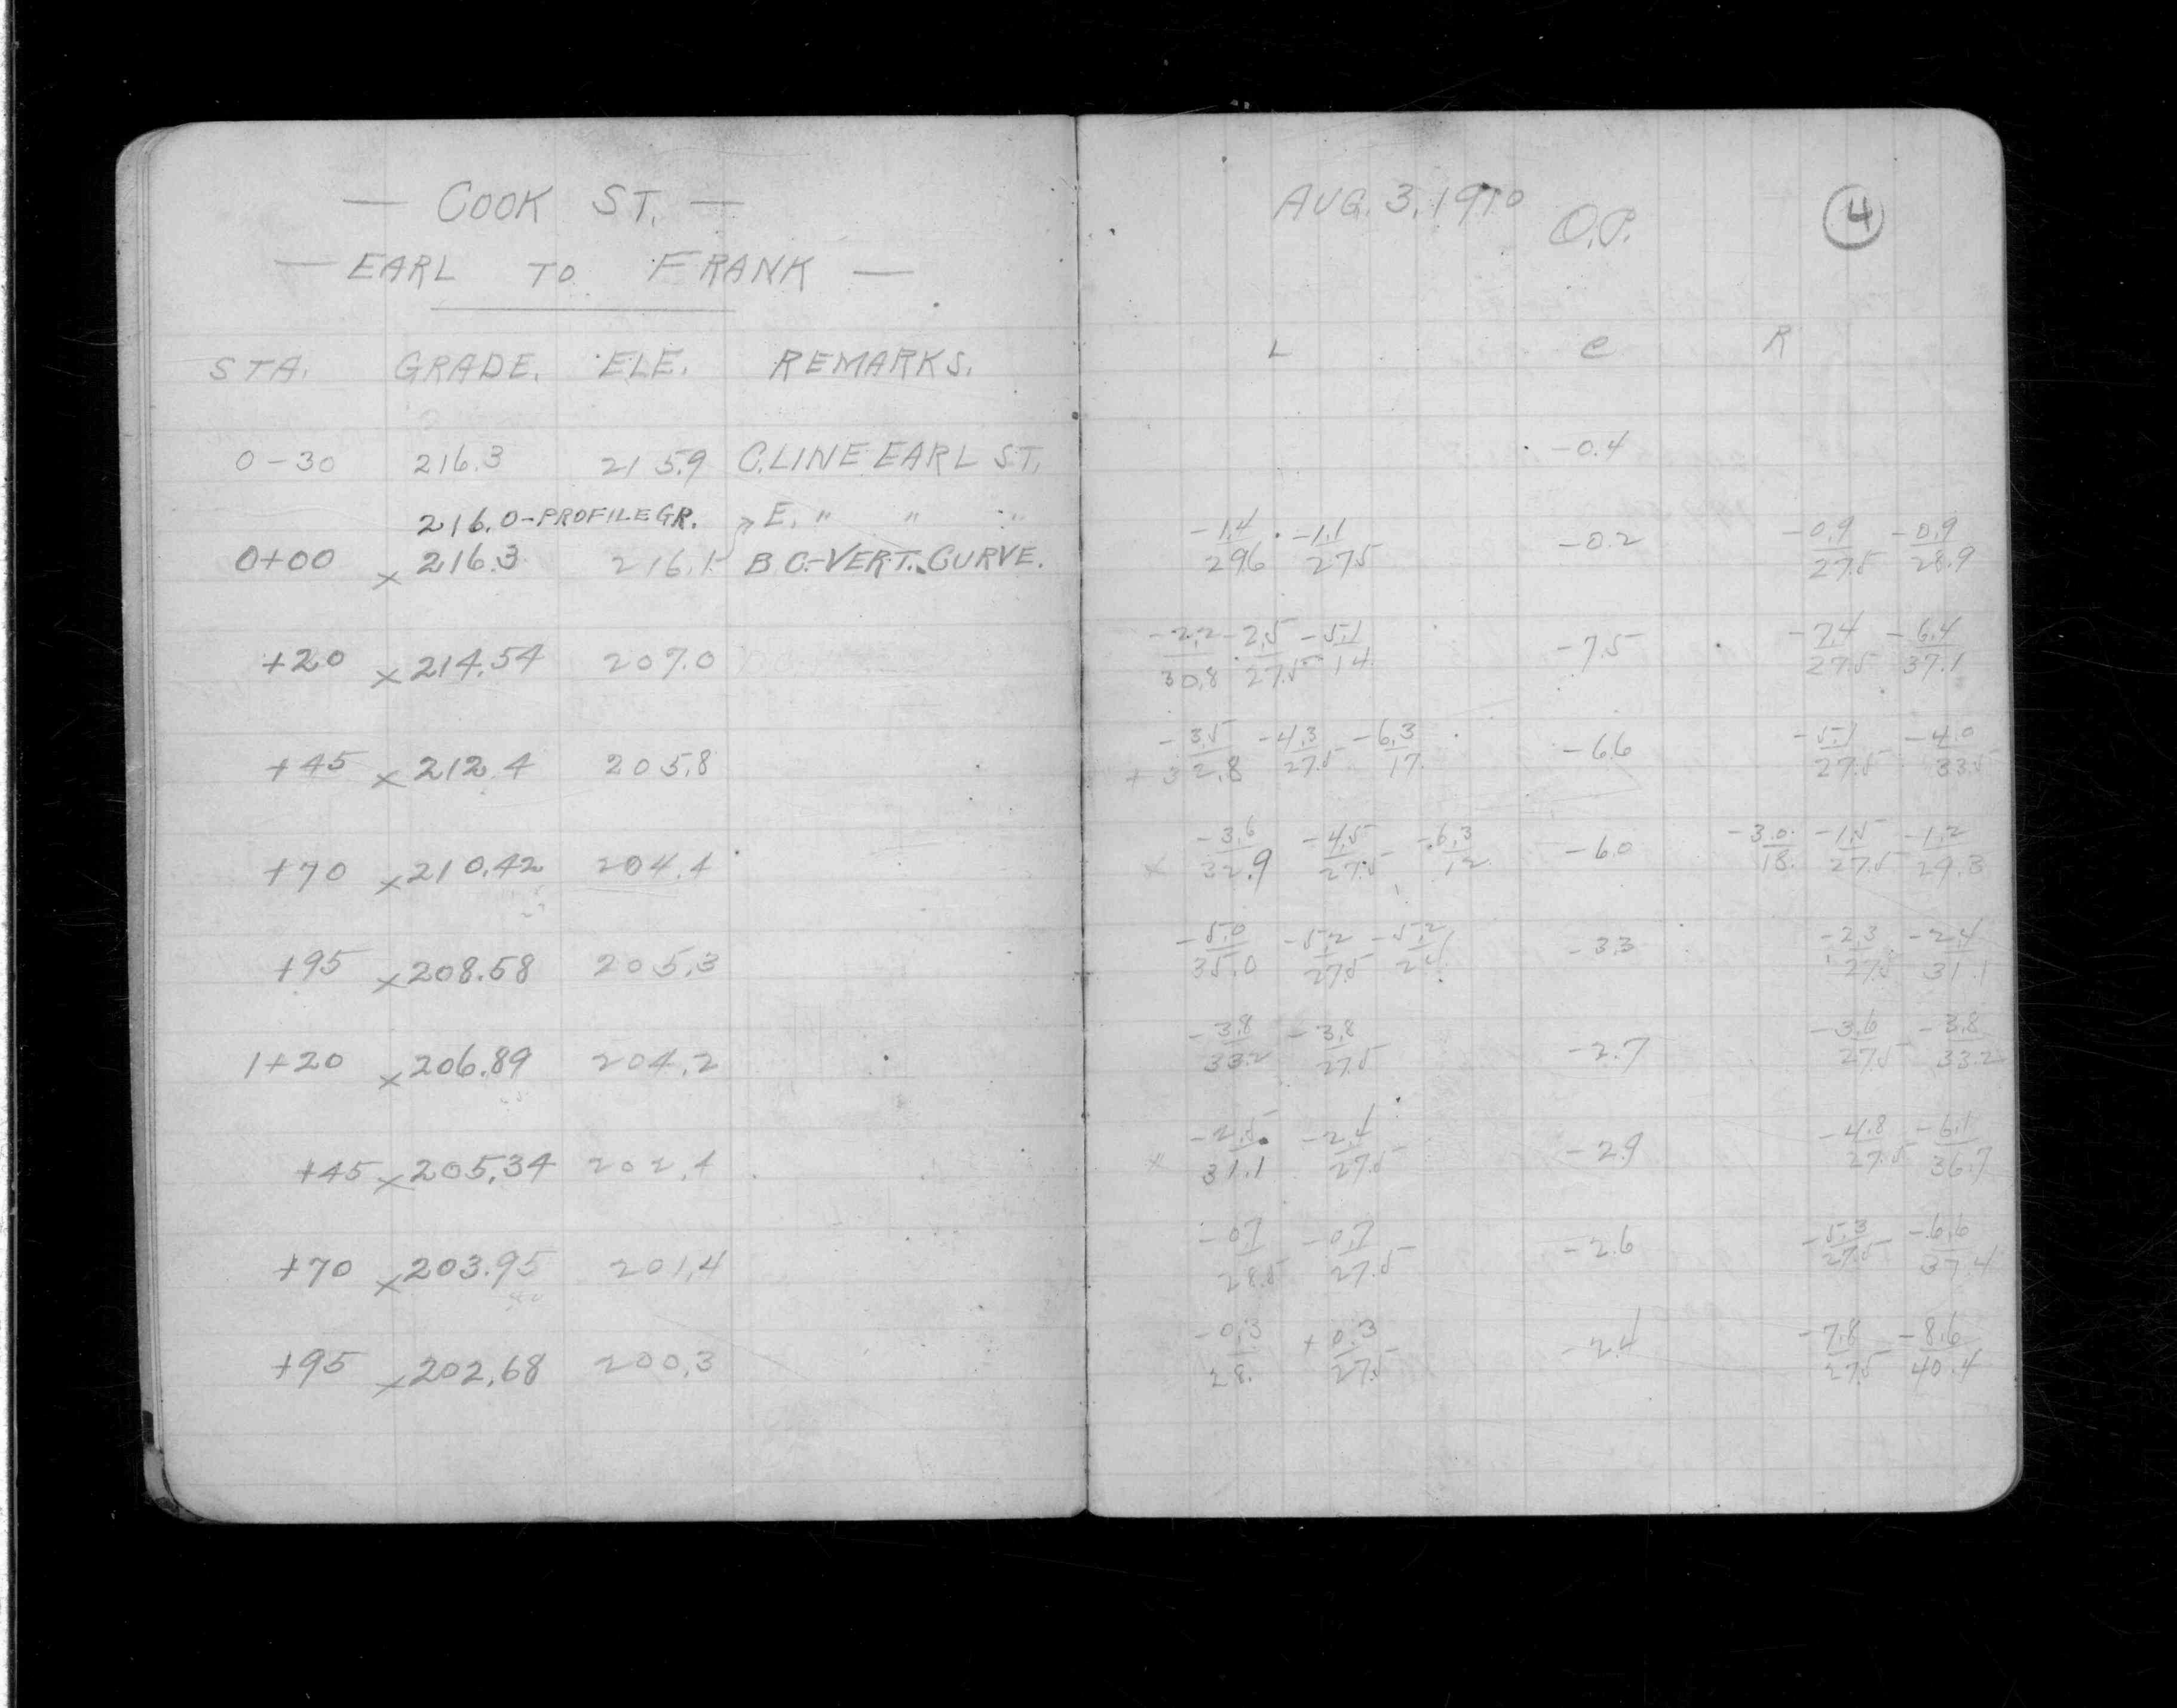 — COOK ST. —
— EARL TO FRANK —
STA. GRADE. ELE. REMARKS.
0-30 216.3 215.9 C.LINE EARL ST.
216.0-PROFILE GR. E. " " "
0+00 x 216.3 216.1 B.C.-VERT. CURVE.
+20 x 214.54 207.0
+45 x 212.4 205.8
+70 x 210.42 204.4
+95 x 208.58 205.3
1+20 x 206.89 204.2
+45 x 205.34 202.4
+70 x 203.95 201.4
+95 x 202.68 200.3
AUG. 3, 1910 O.P. 4
L C R
-0.4
-1.4 -1.1 -0.2 -0.9 -0.9
29.6 27.5 27.5 28.9
-2.2 -2.5 -5.1 -7.5 -7.4 -6.4
30.8 27.5 14 27.5 37.1
-3.5 -4.3 -6.3 -6.6 -5.1 -4.0
+ 32.8 27.5 17. 27.5 33.5
-3.6 -4.5 -6.3 -6.0 -3.0 -1.5 -1.2
x 32.9 27.5 12. 18. 27.5 29.3
-5.0 -5.2 -5.2 -3.3 -2.3 -2.4
35.0 27.5 27.5 31.1
-3.8 -3.8 -2.7 -3.6 -3.8
33.2 27.5 27.5 33.2
-2.4 -2.9 -4.8 -6.1
x 31.1 27.5 27.5 36.7
-0.7 -0.7 -2.6 -5.3 -6.6
28.5 27.5 27.5 37.4
-0.3 +0.3 -2.4 -7.8 -8.6
28. 27.5 27.5 40.4